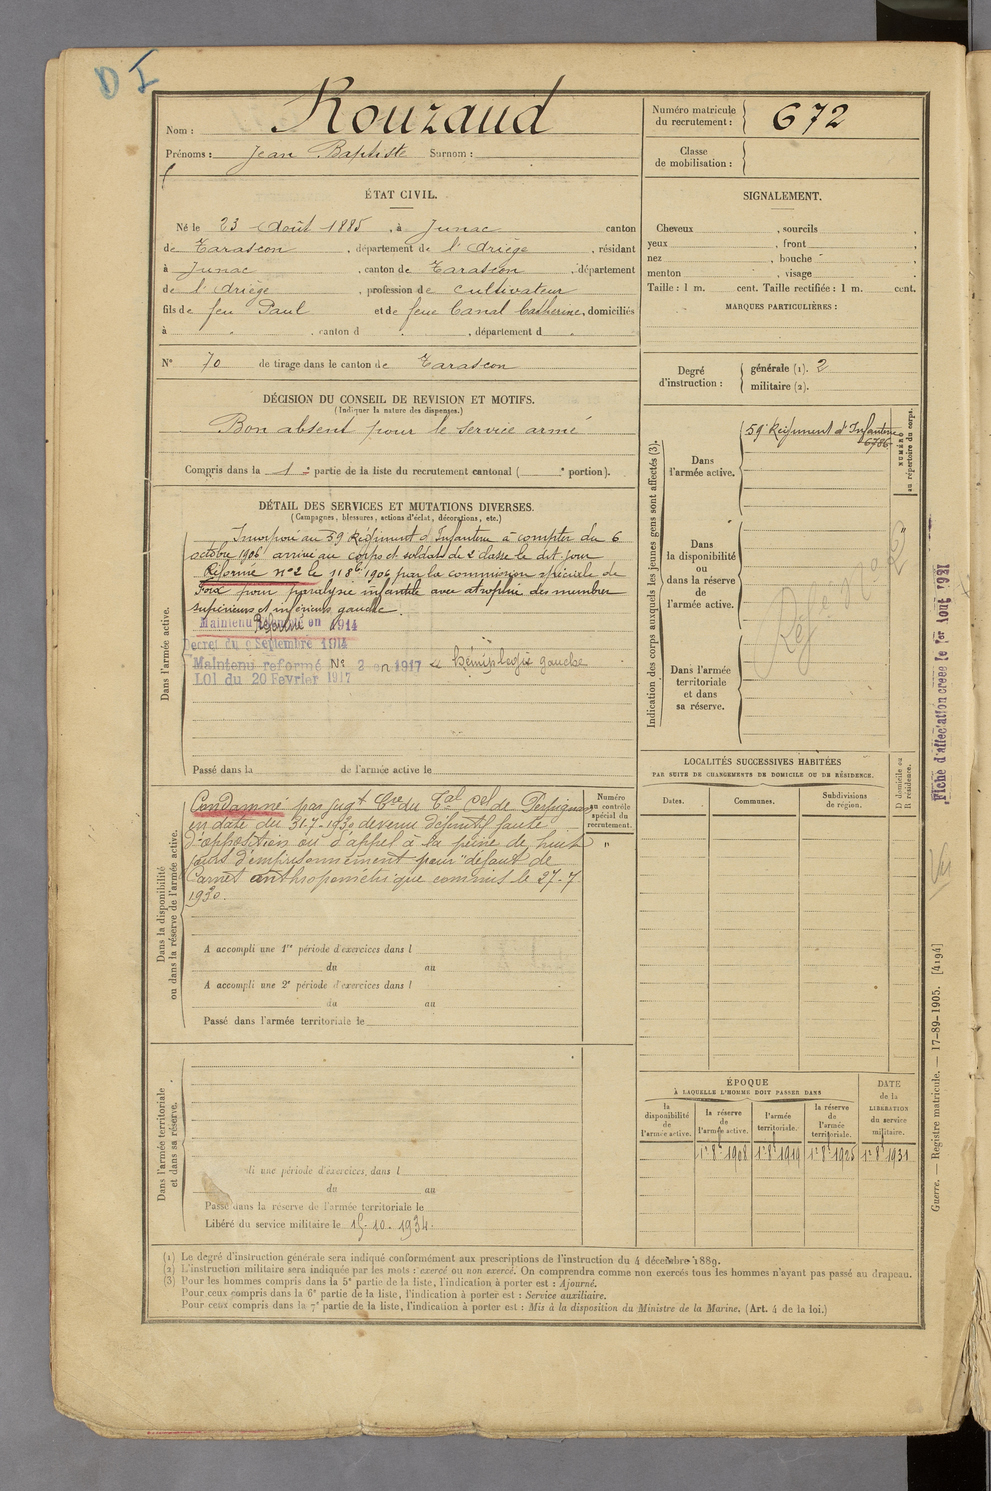 D I
Nom : Rouzaud
Prénoms : Jean Baptiste Surnom :
Numéro matricule du recrutement : 672
Classe de mobilisation :
ÉTAT CIVIL.
Né le 23 Août 1885, à Junac canton
de Tarascon, département de l'Ariège, résidant
à Junac, canton de Tarascon, département
de l'Ariège, profession de cultivateur
fils de feu Paul et de feue Canal Catherine, domiciliés
à , canton d , département d
N° 70 de tirage dans le canton de Tarascon
DÉCISION DU CONSEIL DE REVISION ET MOTIFS.
(Indiquer la nature des dispenses.)
Bon absent pour le service armé
Compris dans la 1e partie de la liste du recrutement cantonal ( e portion).
SIGNALEMENT.
Cheveux , sourcils ,
yeux , front ,
nez , bouche ,
menton , visage
Taille : 1 m. cent. Taille rectifiée : 1 m. cent.
MARQUES PARTICULIÈRES :
Degré d'instruction : générale (1). 2
militaire (2).
DÉTAIL DES SERVICES ET MUTATIONS DIVERSES.
(Campagnes, blessures, actions d'éclat, décorations, etc.)
Dans l'armée active.
Incorporé au 59 Régiment d'Infanterie à compter du 6
octobre 1906 arrivé au corps et soldat de 2 classe le dit jour
Réformé n° 2 le 11 8bre 1906 par la commission spéciale de
Foix pour paralysie infantile avec atrophie des membres
supérieurs et inférieurs gauche.
Maintenu Réformé en 1914
Decret du 9 Septembre 1914
Maintenu reformé N° 2 en 1917 « hémiplégie gauche
LOI du 20 Fevrier 1917
Passé dans la de l'armée active le
Indication des corps auxquels les jeunes gens sont affectés (3).
Dans l'armée active.
59 Régiment d'Infanterie
6786
NUMÉRO au répertoire du corps.
Dans la disponibilité ou dans la réserve de l'armée active.
Réf. N° 2
Dans l'armée territoriale et dans sa réserve.
Fiche d'affectation créée le 1er Aout 1921
Dans la disponibilité ou dans la réserve de l'armée active.
Condamné par jugt Cre du Cal Cel de Perpignan
en date du 31-7-1930 devenu définitif faute
d'opposition ou d'appel à la peine de huit
jours d'emprisonnement pour "défaut de
Carnet anthropométrique commis le 27-7
1930.
Numéro au contrôle spécial du recrutement.
"
A accompli une 1re période d'exercices dans l
du au
A accompli une 2e période d'exercices dans l
du au
Passé dans l'armée territoriale le
LOCALITÉS SUCCESSIVES HABITÉES
PAR SUITE DE CHANGEMENTS DE DOMICILE OU DE RÉSIDENCE.
Dates. Communes. Subdivisions de région. D domicile ou R résidence.
Dans l'armée territoriale et dans sa réserve.
li une période d'exercices, dans l
du au
Passé dans la réserve de l'armée territoriale le
Libéré du service militaire le 15-10-1934.
ÉPOQUE
À LAQUELLE L'HOMME DOIT PASSER DANS
la disponibilité de l'armée active.
la réserve de l'armée active.
l'armée territoriale.
la réserve de l'armée territoriale.
DATE de la LIBÉRATION du service militaire.
1r 8bre 1908 1r 8bre 1919 1r 8bre 1925 1r 8bre 1931
Guerre. — Registre matricule. — 17-89-1905. [4194]
(1) Le degré d'instruction générale sera indiqué conformément aux prescriptions de l'instruction du 4 décembre 1889.
(2) L'instruction militaire sera indiquée par les mots : exercé ou non exercé. On comprendra comme non exercés tous les hommes n'ayant pas passé au drapeau.
(3) Pour les hommes compris dans la 5e partie de la liste, l'indication à porter est : Ajourné.
Pour ceux compris dans la 6e partie de la liste, l'indication à porter est : Service auxiliaire.
Pour ceux compris dans la 7e partie de la liste, l'indication à porter est : Mis à la disposition du Ministre de la Marine. (Art. 4 de la loi.)